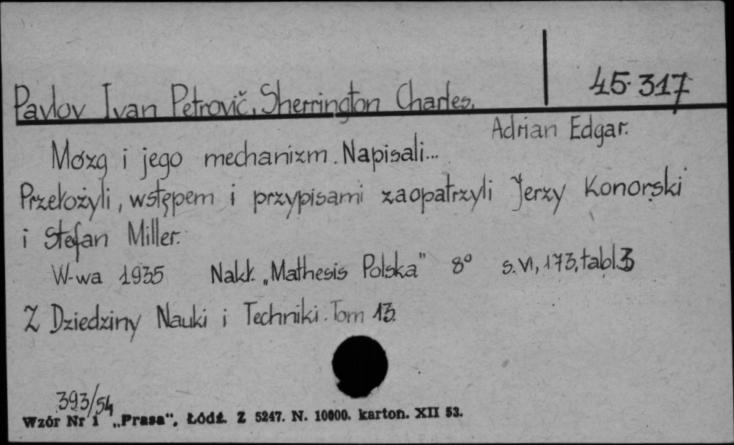 45·317
Pavlov Ivan Petrovič, Sherrington Charles,
Adrian Edgar.
Mózg i jego mechanizm. Napisali...
Przełożyli, wstępem i przypisami zaopatrzyli Jerzy Konorski
i Stefan Miller.
W-wa 1935 Nakł. „Mathesis Polska" 8° s. VI, 173, tabl. 3
Z Dziedziny Nauki i Techniki. Tom 13.
393/54
Wzór Nr 1 „Prasa", Łódź. Z 5247. N. 10000. karton. XII 53.